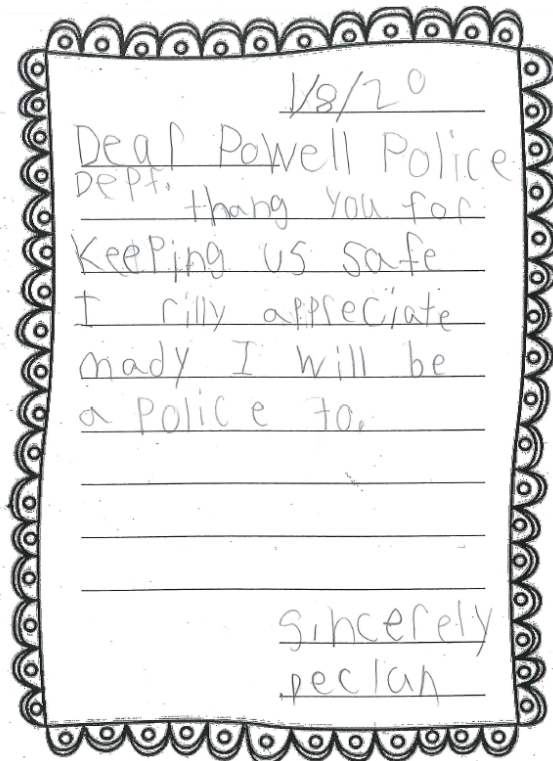 1/8/20
Dear Powell Police
Dept.
thang you for
Keeping us safe
I rilly appreciate
mady I will be
a police to.
sincerely
Declan